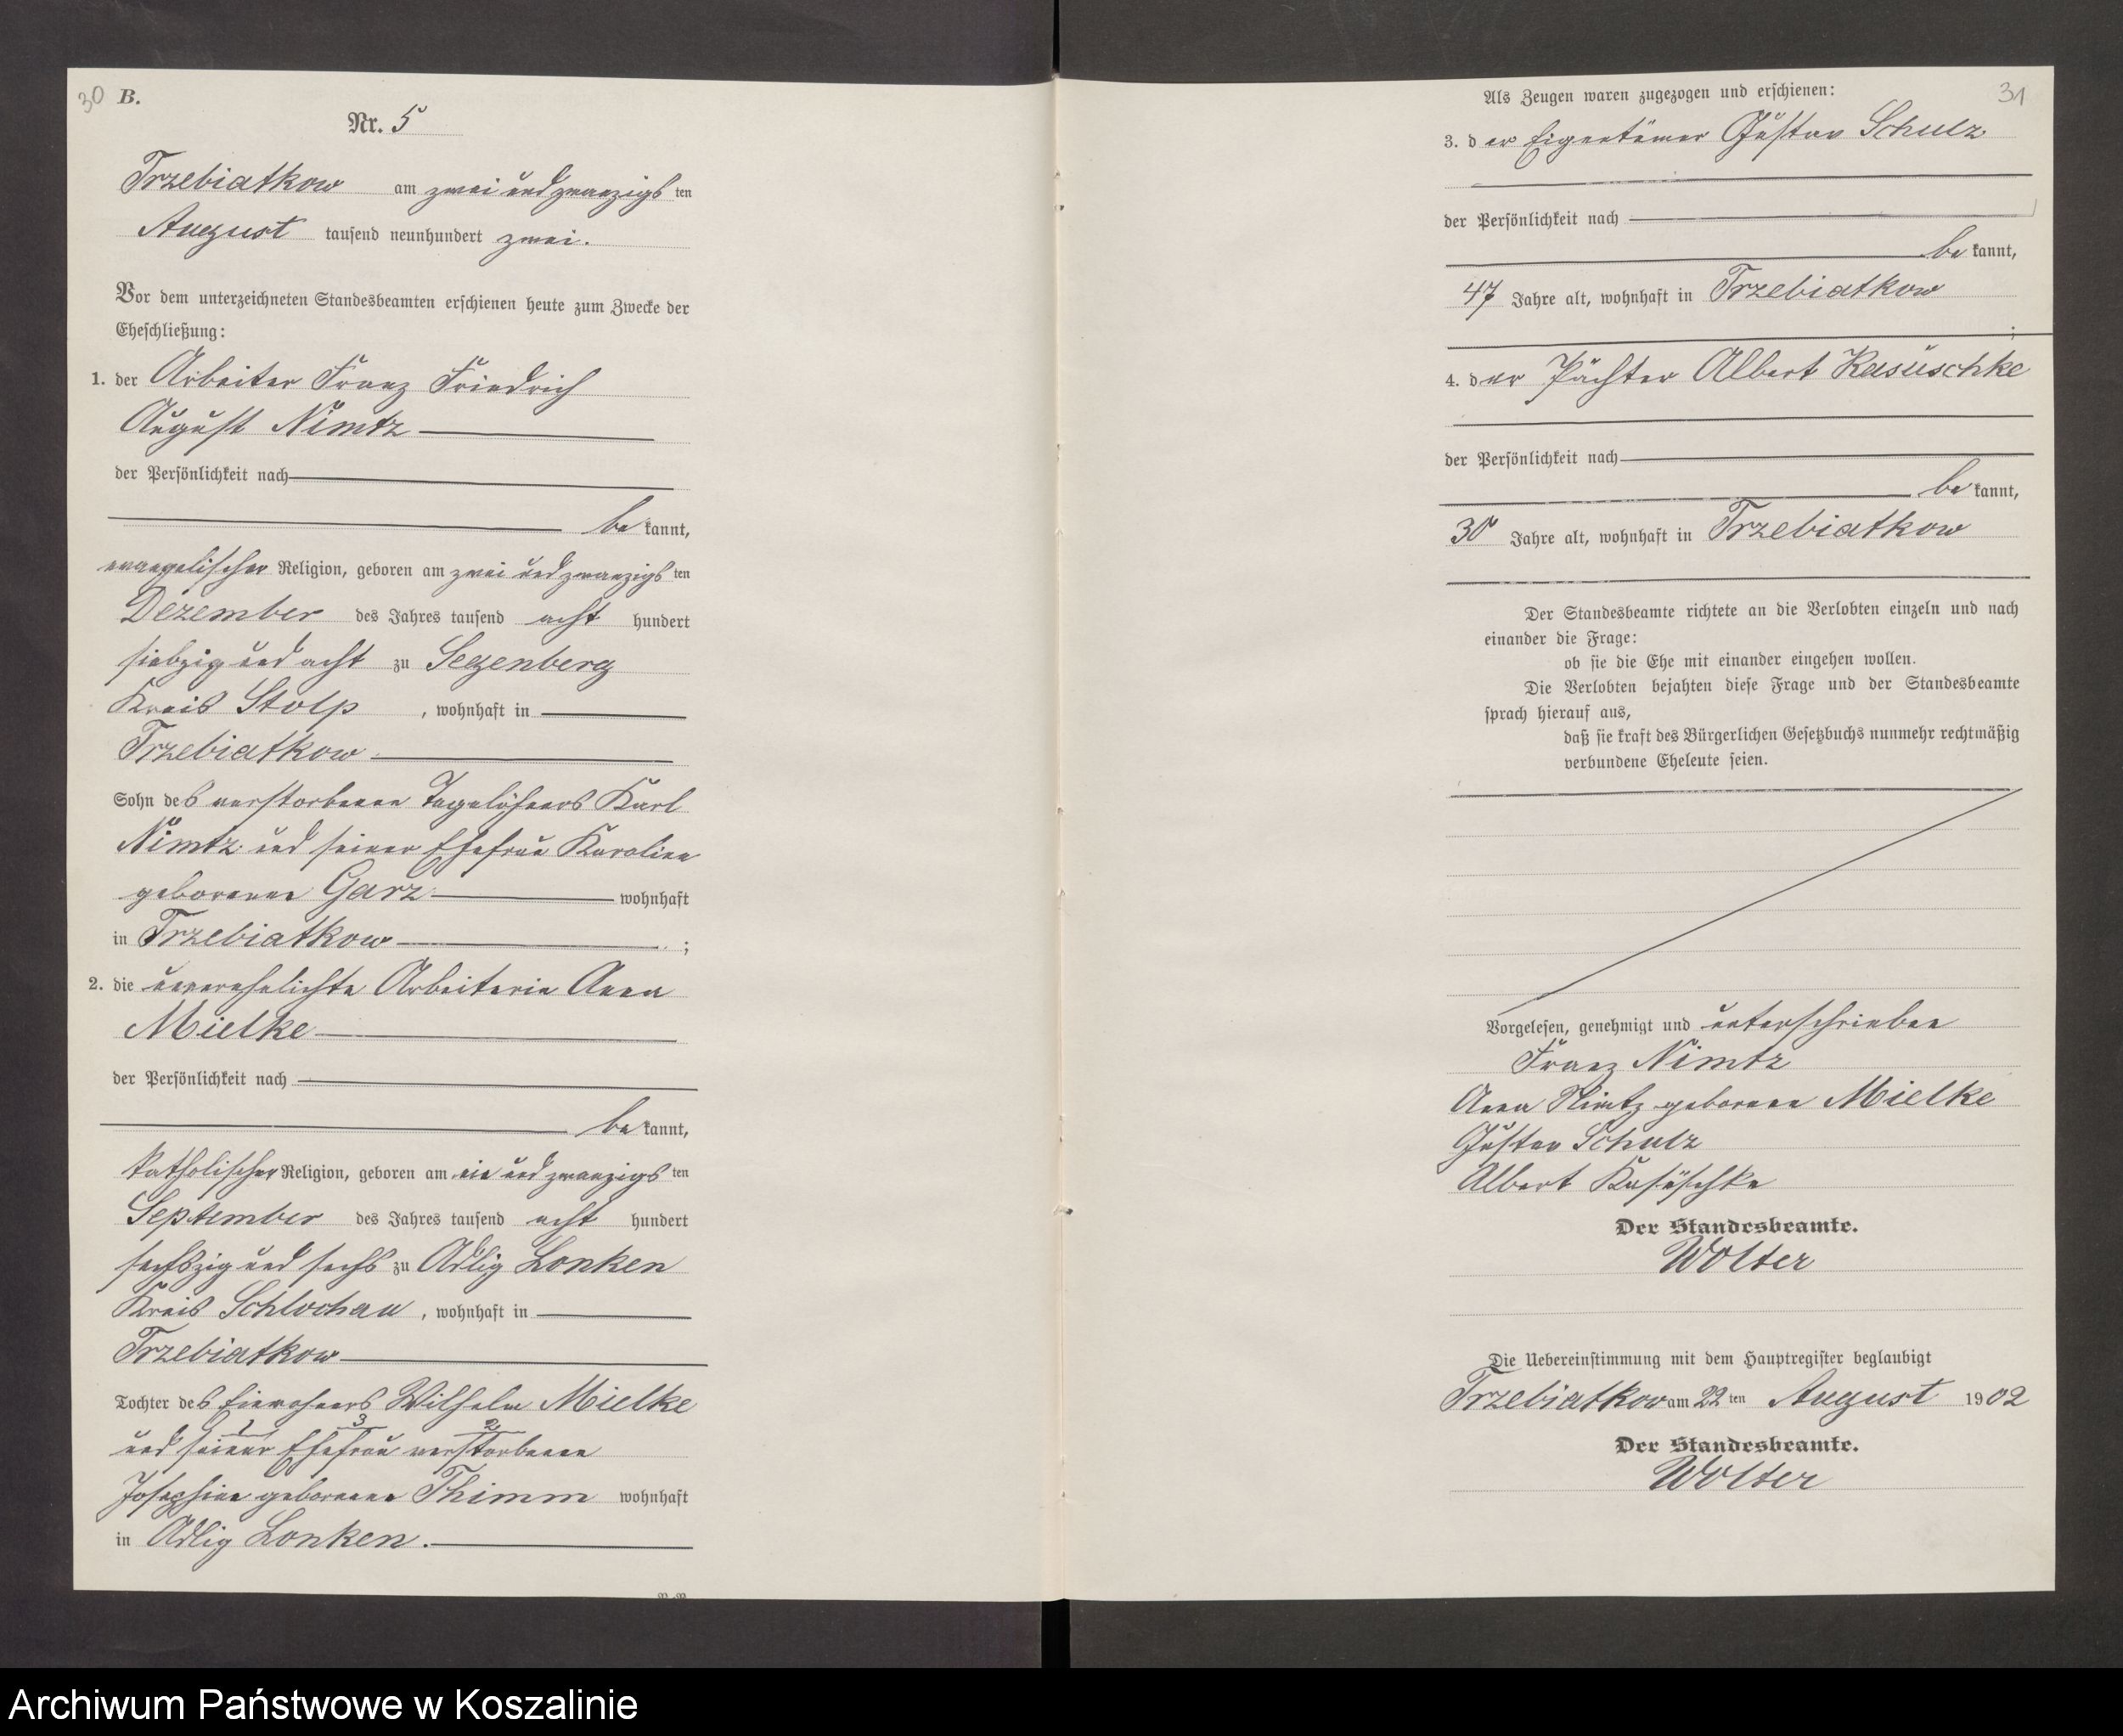 30 B.
Nr. 5
Trzebiatkow am zwei und zwanzigsten
August tausend neunhundert zwei.
Vor dem unterzeichneten Standesbeamten erschienen heute zum Zwecke der
Eheschließung:
1. der Arbeiter Franz Friedrich
August Nimtz
der Persönlichkeit nach
be kannt,
evangelischer Religion, geboren am zwei und zwanzigsten
Dezember des Jahres tausend acht hundert
siebzig und acht zu Segenberg
Kreis Stolp, wohnhaft in
Trzebiatkow
Sohn des verstorbenen Tagelöhners Karl
Nimtz und seiner Ehefrau Karoline
geborenen Garz wohnhaft
in Trzebiatkow ;
2. die unverehelichte Arbeiterin Anna
Mielke
der Persönlichkeit nach
be kannt,
katholischer Religion, geboren am ein und zwanzigsten
September des Jahres tausend acht hundert
sechszig und sechs zu Adlig Lonken
Kreis Schlochau, wohnhaft in
Trzebiatkow
Tochter des Einwohners Wilhelm Mielke
1 3 2
und seiner Ehefrau verstorbenen
Josephine geborenen Thimm wohnhaft
in Adlig Lonken.
31
Als Zeugen waren zugezogen und erschienen:
3. der Eigentümer Gustav Schulz
der Persönlichkeit nach
be kannt,
47 Jahre alt, wohnhaft in Trzebiatkow
;
4. der Pächter Albert Kasuschke
der Persönlichkeit nach
be kannt,
30 Jahre alt, wohnhaft in Trzebiatkow
Der Standesbeamte richtete an die Verlobten einzeln und nach
einander die Frage:
ob sie die Ehe mit einander eingehen wollen.
Die Verlobten bejahten diese Frage und der Standesbeamte
sprach hierauf aus,
daß sie kraft des Bürgerlichen Gesetzbuchs nunmehr rechtmäßig
verbundene Eheleute seien.
Vorgelesen, genehmigt und unterschrieben
Franz Nimtz
Anna Nimtz geborene Mielke
Gustav Schulz
Albert Kasuschke
Der Standesbeamte.
Wolter
Die Uebereinstimmung mit dem Hauptregister beglaubigt
Trzebiatkow am 22ten August 1902
Der Standesbeamte.
Wolter
Archiwum Państwowe w Koszalinie